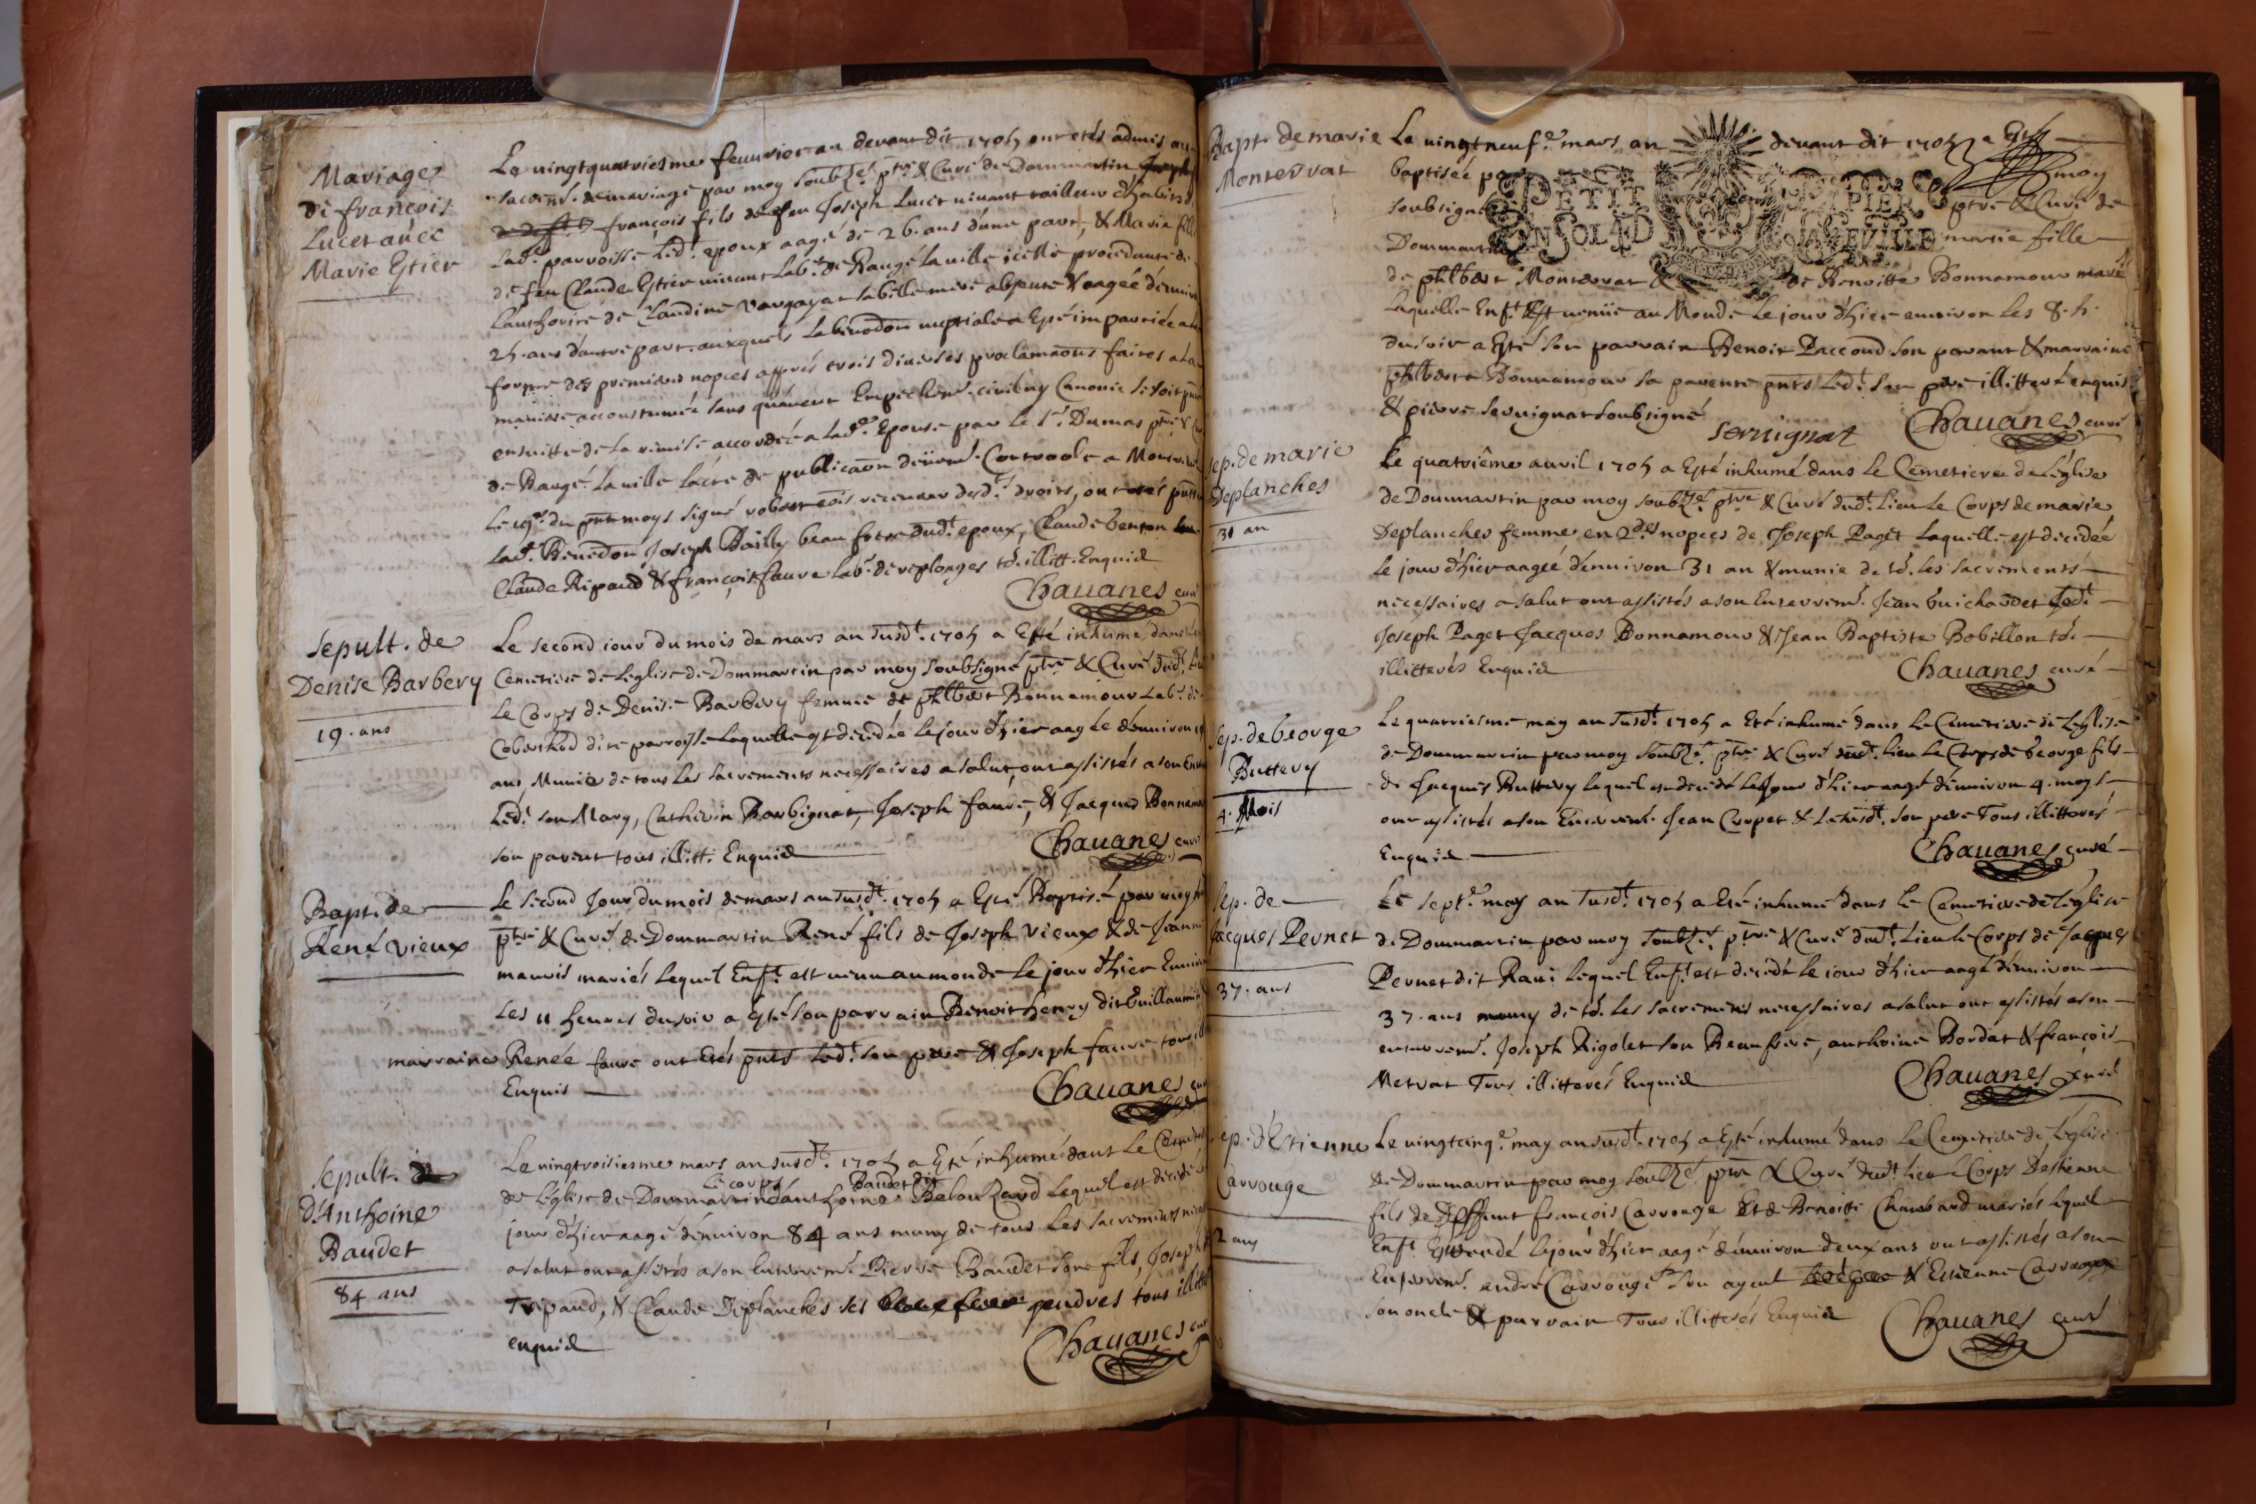 Mariage
de françois
Lucet avec
Marie Estier
Le vingtquatriesme feuvrier an devant dit 1705 ont etés admis au
sacremt. de mariage par moy soubsé. ptre & Curé de Dommartin
françois fils de feu Joseph Lucet vivant tailleur d'habits d
lade. parroisse led. epoux aagé de 26. ans d'une part, & Marie fille
de feu Claude Estier vivant labr. de Baugé la ville icelle procedante de
l'authorité de Claudine sa belle mere absente & aagée d'environ
25. ans d'autre part. auxquels la benedon nuptiale a Esté impartiée en la
forme des premieres nopces apprés trois diverses proclamaons faites a la
maniere accoustumée sans qu'aucun Empechemt. civil ny Canonic se soit
ensuitte de la remise accordée a lade. Epouse par le Sr. Dumas ptre &
de Baugé la ville lacte de publicaon deüemt. Controole a
le 19e. du pnt moys signé
lade. Benedon Joseph Bailly beau frere dudt. epoux, Claude benon
Claude Ripaud & françois faure labr. de replonges ts. illitt. Enquis
Chauanes curé
Sepult. de
Denise Barbery
19. ans
Le second jour du mois de mars an susdt. 1705 a Esté inhumé dans le
Cemetiere de L'eglise de Dommartin par moy soubsigné ptre & Curé dudt. lieu
Le Corps de Denise Barbery femme de phlbert Bonnamour Labr. de
dite parroisse laquelle est decedée le jour d'hier aagée d'environ 19
ans, Munie de tous les sacrements necessaires a salut, ont assistés a son
Ledt. son Mary, Catherin Barbignat, Joseph faure, & Jacques Bonnamour
son parent tous illitt. Enquis
Chauanes curé
Bapt. de
René vieux
Le second Jour du mois de mars an susdt. 1705 a Esté Baptisé par moy
ptre & Curé de Dommartin René fils de Joseph vieux & de Jeanne
mauris mariés lequel Enft. est venu au monde le jour d'hier Environ
les 11 heures du soir a Esté son parrain Benoit henry dit Guillaume
marraine Renée faure ont Etés pnts ledt. son pere & Joseph faure tous
Enquis
Chauanes curé
Sepult.
d'Anthoine
Baudet
84 ans
Le vingtroisiesme mars an susdt. 1705 a Esté inhumé dans le
Le corps Baudet dit
de l'église de Dommartin d'anthoine lequel est decedé
jour d'hier aagé d'environ 84 ans muny de tous les sacrements
a salut ont assistés a son Enterremt. Pierre Baudet son fils, Joseph
Tripaud, & Claude Deplanches ses gendres tous
enquis
Chauanes curé
Bapt. de marie
Monterrat
Le vingtneufe. mars an devant dit 1705 a Esté
baptisée par moy
soubsigné ptre & Curé de
Dommartin marie fille
PETIT PAPIER
UN SOL 4 D LA FEVILLE
de phlbert Monterrat & de Benoitte Bonnamour mariés
laquelle Enft. Est venüe au Monde le jour d'hier environ les 8. h.
du soir a Esté son parrain Benoit Paccoud son parant & marraine
phlberte Bonnamour sa parente pnts Ledt. son pere illitteré enquis
& pierre Servignat soubsigné
Servignat
Chauanes curé
Sep. de marie
Deplanches
31 an
Le quatriême avril 1705 a Esté inhumé dans le Cemetiere de L'église
de Dommartin par moy soubsé. ptre & Curé dudt. Lieu le Corps de marie
Deplanches femme en 2des nopces de Joseph Paget laquelle est decedée
le jour d'hier aagée d'environ 31 an & munie de ts. les sacrements
necessaires a salut ont assistés a son Enterremt. Jean Guichardet
Joseph Paget Jacques Bonnamour & Jean Baptiste Bobillon ts.
illitterés Enquis
Chauanes curé
Sep. de George
Buttery
4. Mois
Le quatriesme may an susdt. 1705 a Eté inhumé dans le Cemetiere de L'eglise
de Dommartin par moy soubsé. ptre & Curé dudt. lieu le Corps de George fils
de Jacques Buttery lequel est decedé le jour d'hier aagé d'environ 4. moys
ont assistés a son Enterremt. Jean Curpet & Le susdt. son pere Tous illitterés
Enquis
Chauanes curé
Sep. de
Jacques Pernet
37. ans
Le septe. may an susdt. 1705 a Eté inhumé dans le Cemetiere de l'église
de Dommartin par moy soubsé. ptre & Curé dudt. Lieu le Corps de Jacques
Pernet dit Ravi lequel Enft. est decedé le jour d'hier aagé d'environ
37. ans muny de ts. les sacrements necessaires a salut ont assistés a son
enterremt. Joseph Rigolet son Beaufrere, anthoine Bordat & françois
Metrat Tous illitterés Enquis
Chauanes curé
Sep. d'Etienne
Carrouge
2 ans
Le vingtcinqe. may an susdt. 1705 a Esté inhumé dans le Cemetiere de L'église
de Dommartin par moy soubsé. ptre & Curé dudt. lieu le Corps d'estienne
fils de deffunt françois Carrouge & de Benoitte Chambard mariés lequel
Enft. Est decedé le jour d'hier aagé d'environ deux ans ont assistés a son
Enterremt. andré Carrouge son ayeul & Etienne Carrouge
son oncle & parrain Tous illitterés Enquis
Chauanes curé